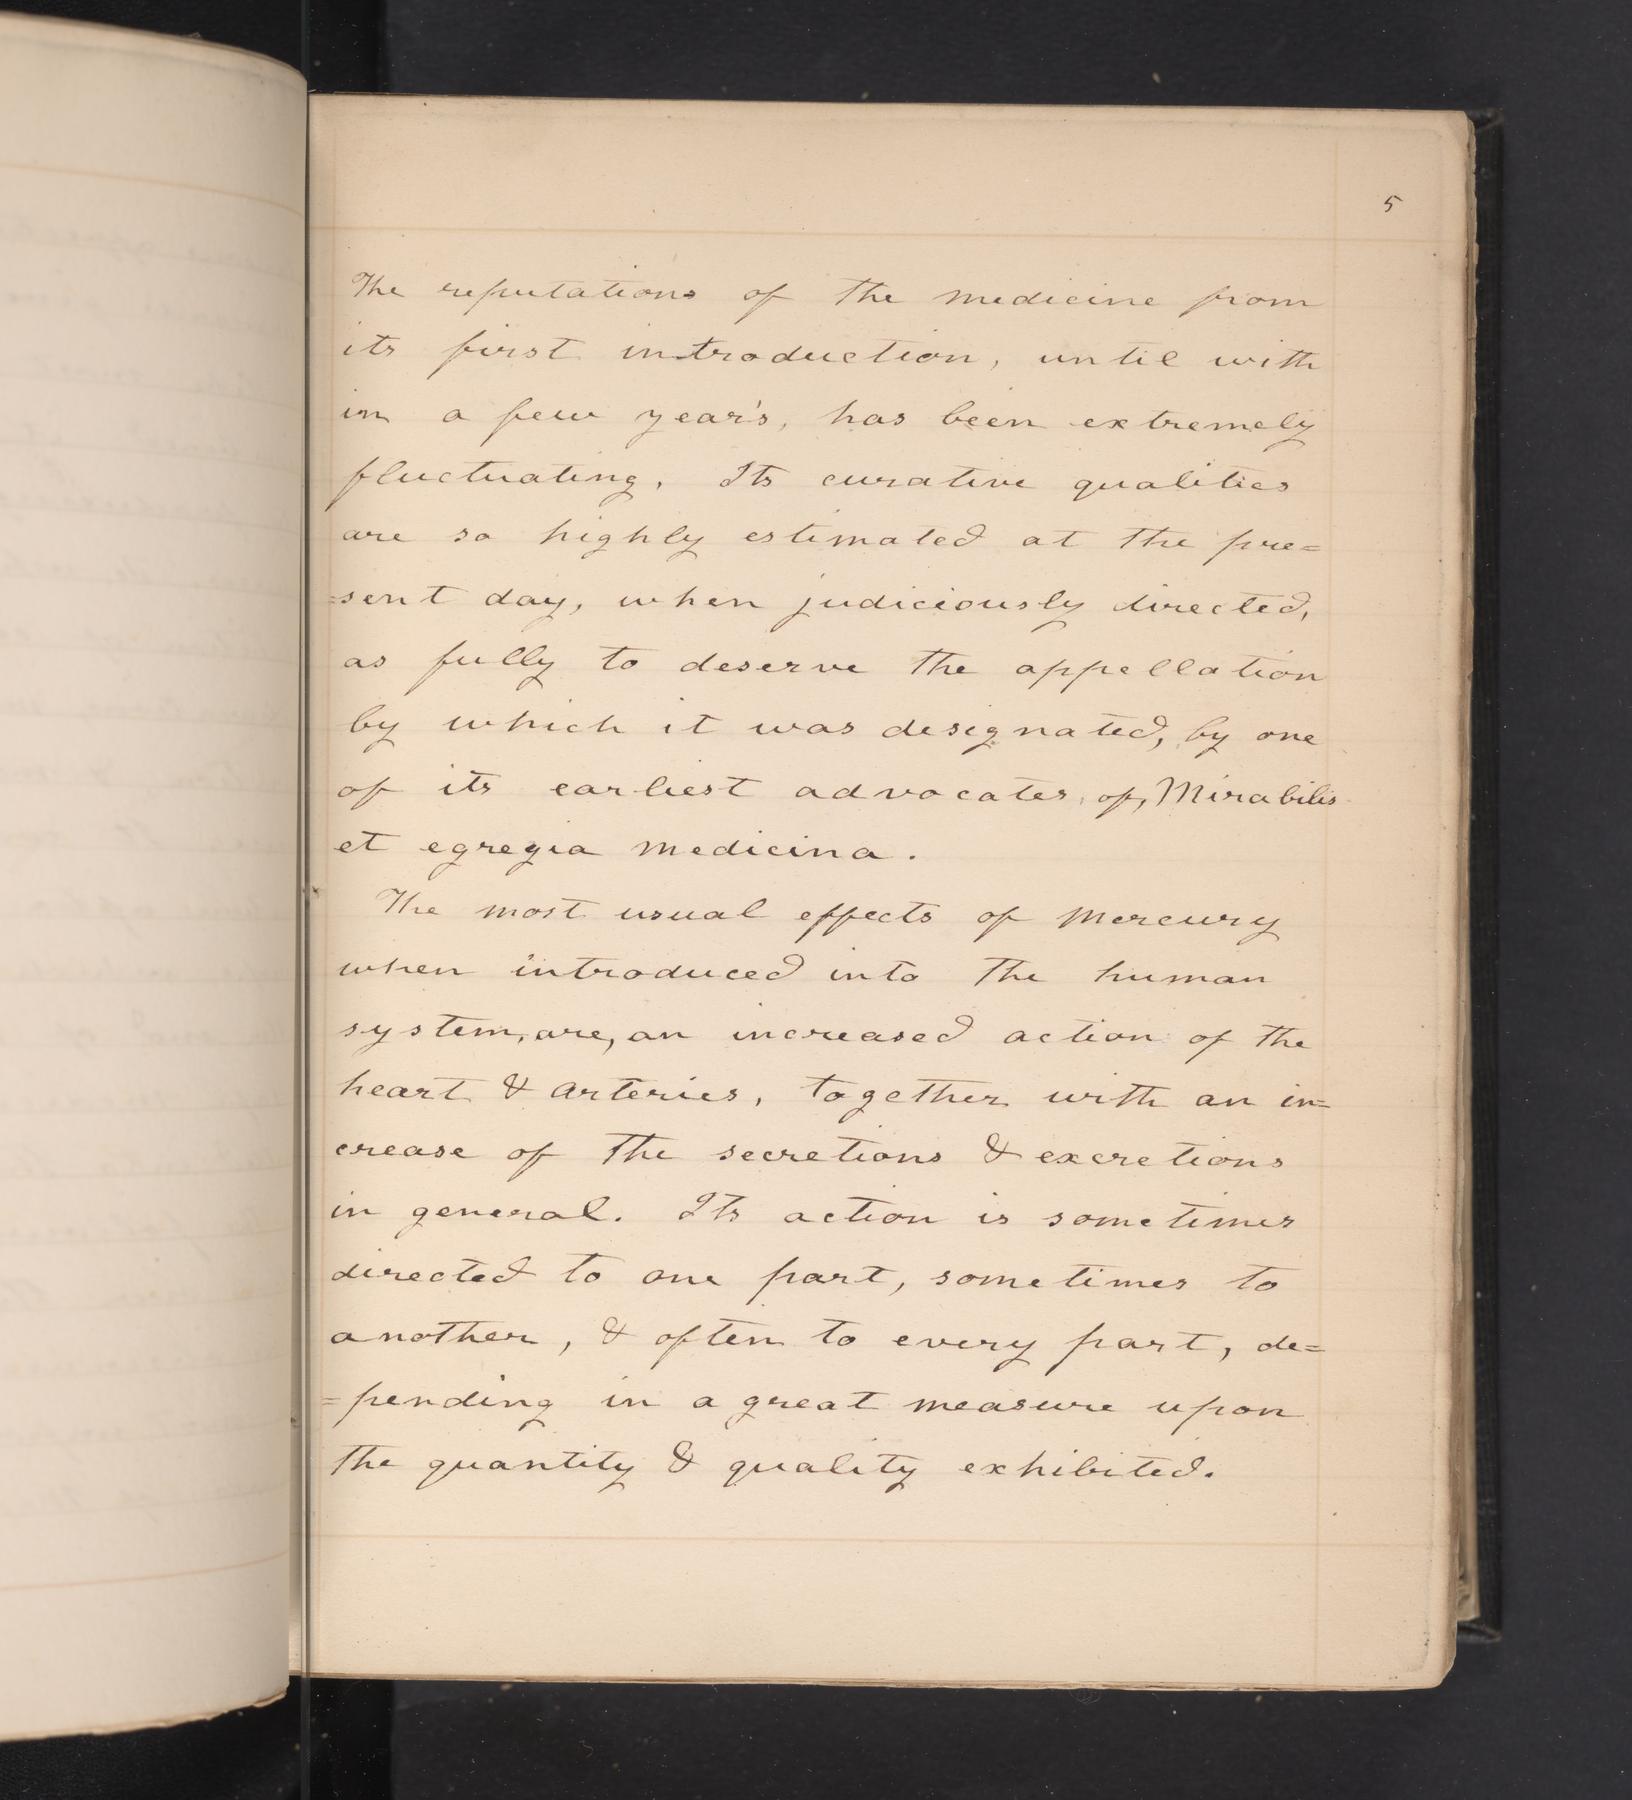 5
The reputations of the medicine from
its first introduction, until with
in a few year's, has been extremely
fluctuating. Its curative qualities
are so highly estimated at the pre=
=sent day, when judiciously directed,
as fully to deserve the appellation
by which it was designated, by one
of its earliest advocates, of, Mirabilis
et egregia medicina.
The most usual effects of Mercury
when introduced into the human
system, are, an increased action of the
heart & arteries, together with an in=
crease of the secretions & excretions
in general. Its action is sometimes
directed to one part, sometimes to
another, & often to every part, de=
=pending in a great measure upon
the quantity & quality exhibited.